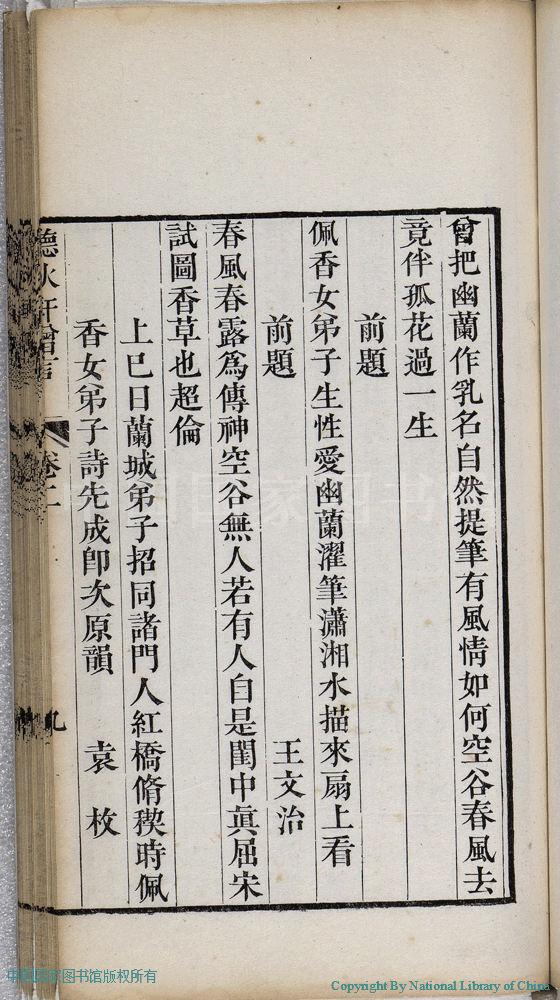 曾把幽蘭作乳名自然提筆有風情如何空谷春風去
竟伴孤花過一生
前題
佩香女弟子生性愛幽蘭濯筆瀟湘水描來扇上看
前題 王文治
春風春露爲傳神空谷無人若有人自是閨中眞屈宋
試圖香草也超倫
上巳日蘭城弟子招同諸門人紅橋脩禊時佩
香女弟子詩先成卽次原韻 袁枚
卷二
九
中国国家图书馆版权所有
Copyright By National Library of China